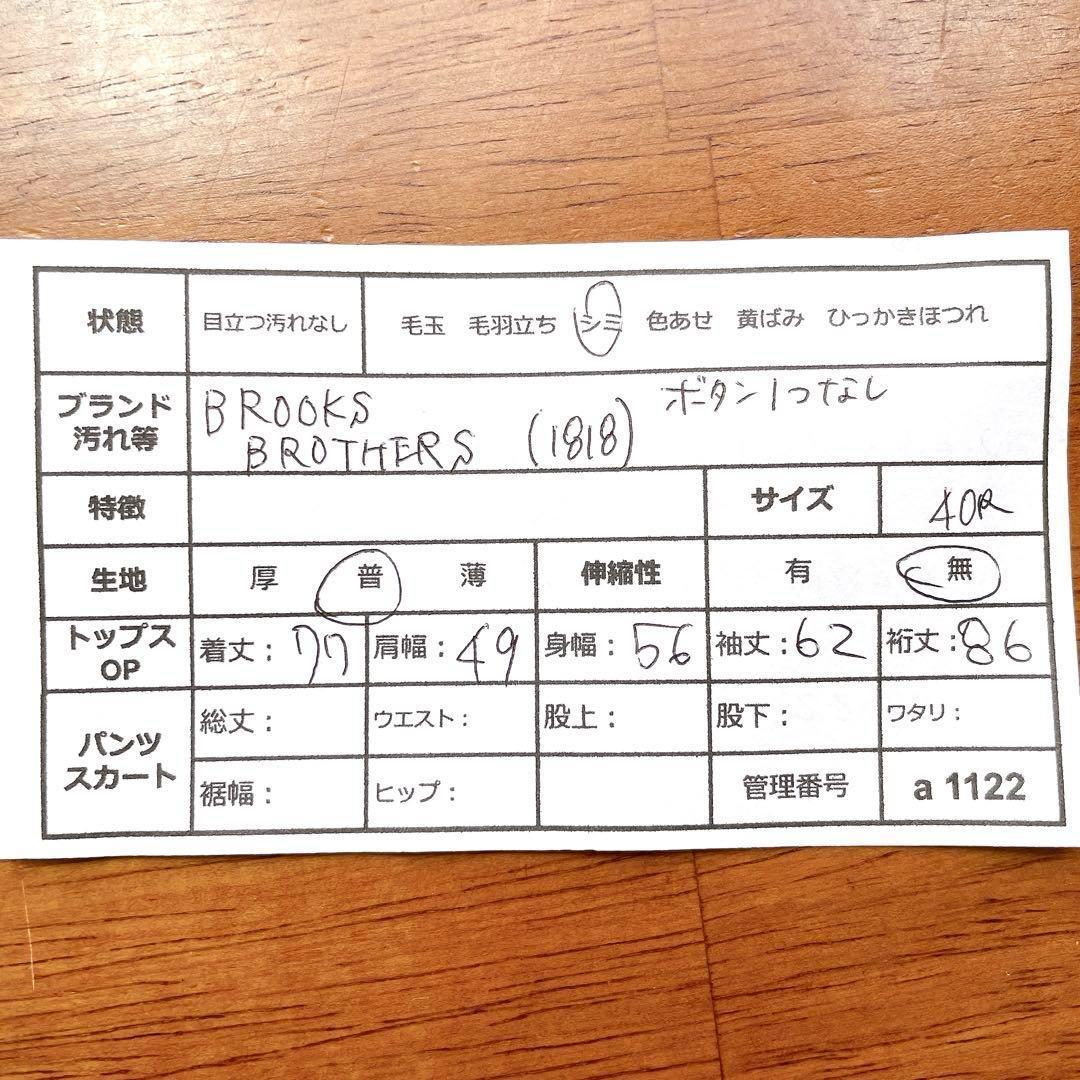 状態 目立つ汚れなし 毛玉 毛羽立ち シミ 色あせ 黄ばみ ひっかきほつれ
ブランド
汚れ等
BROOKS
BROTHERS (1818)
ボタン1つなし
特徴 サイズ 40R
生地 厚 普 薄 伸縮性 有 無
トップス
OP
着丈: 77 肩幅: 49 身幅: 56 袖丈: 62 裄丈: 86
パンツ
スカート
総丈: ウエスト: 股上: 股下: ワタリ:
裾幅: ヒップ: 管理番号 a 1122